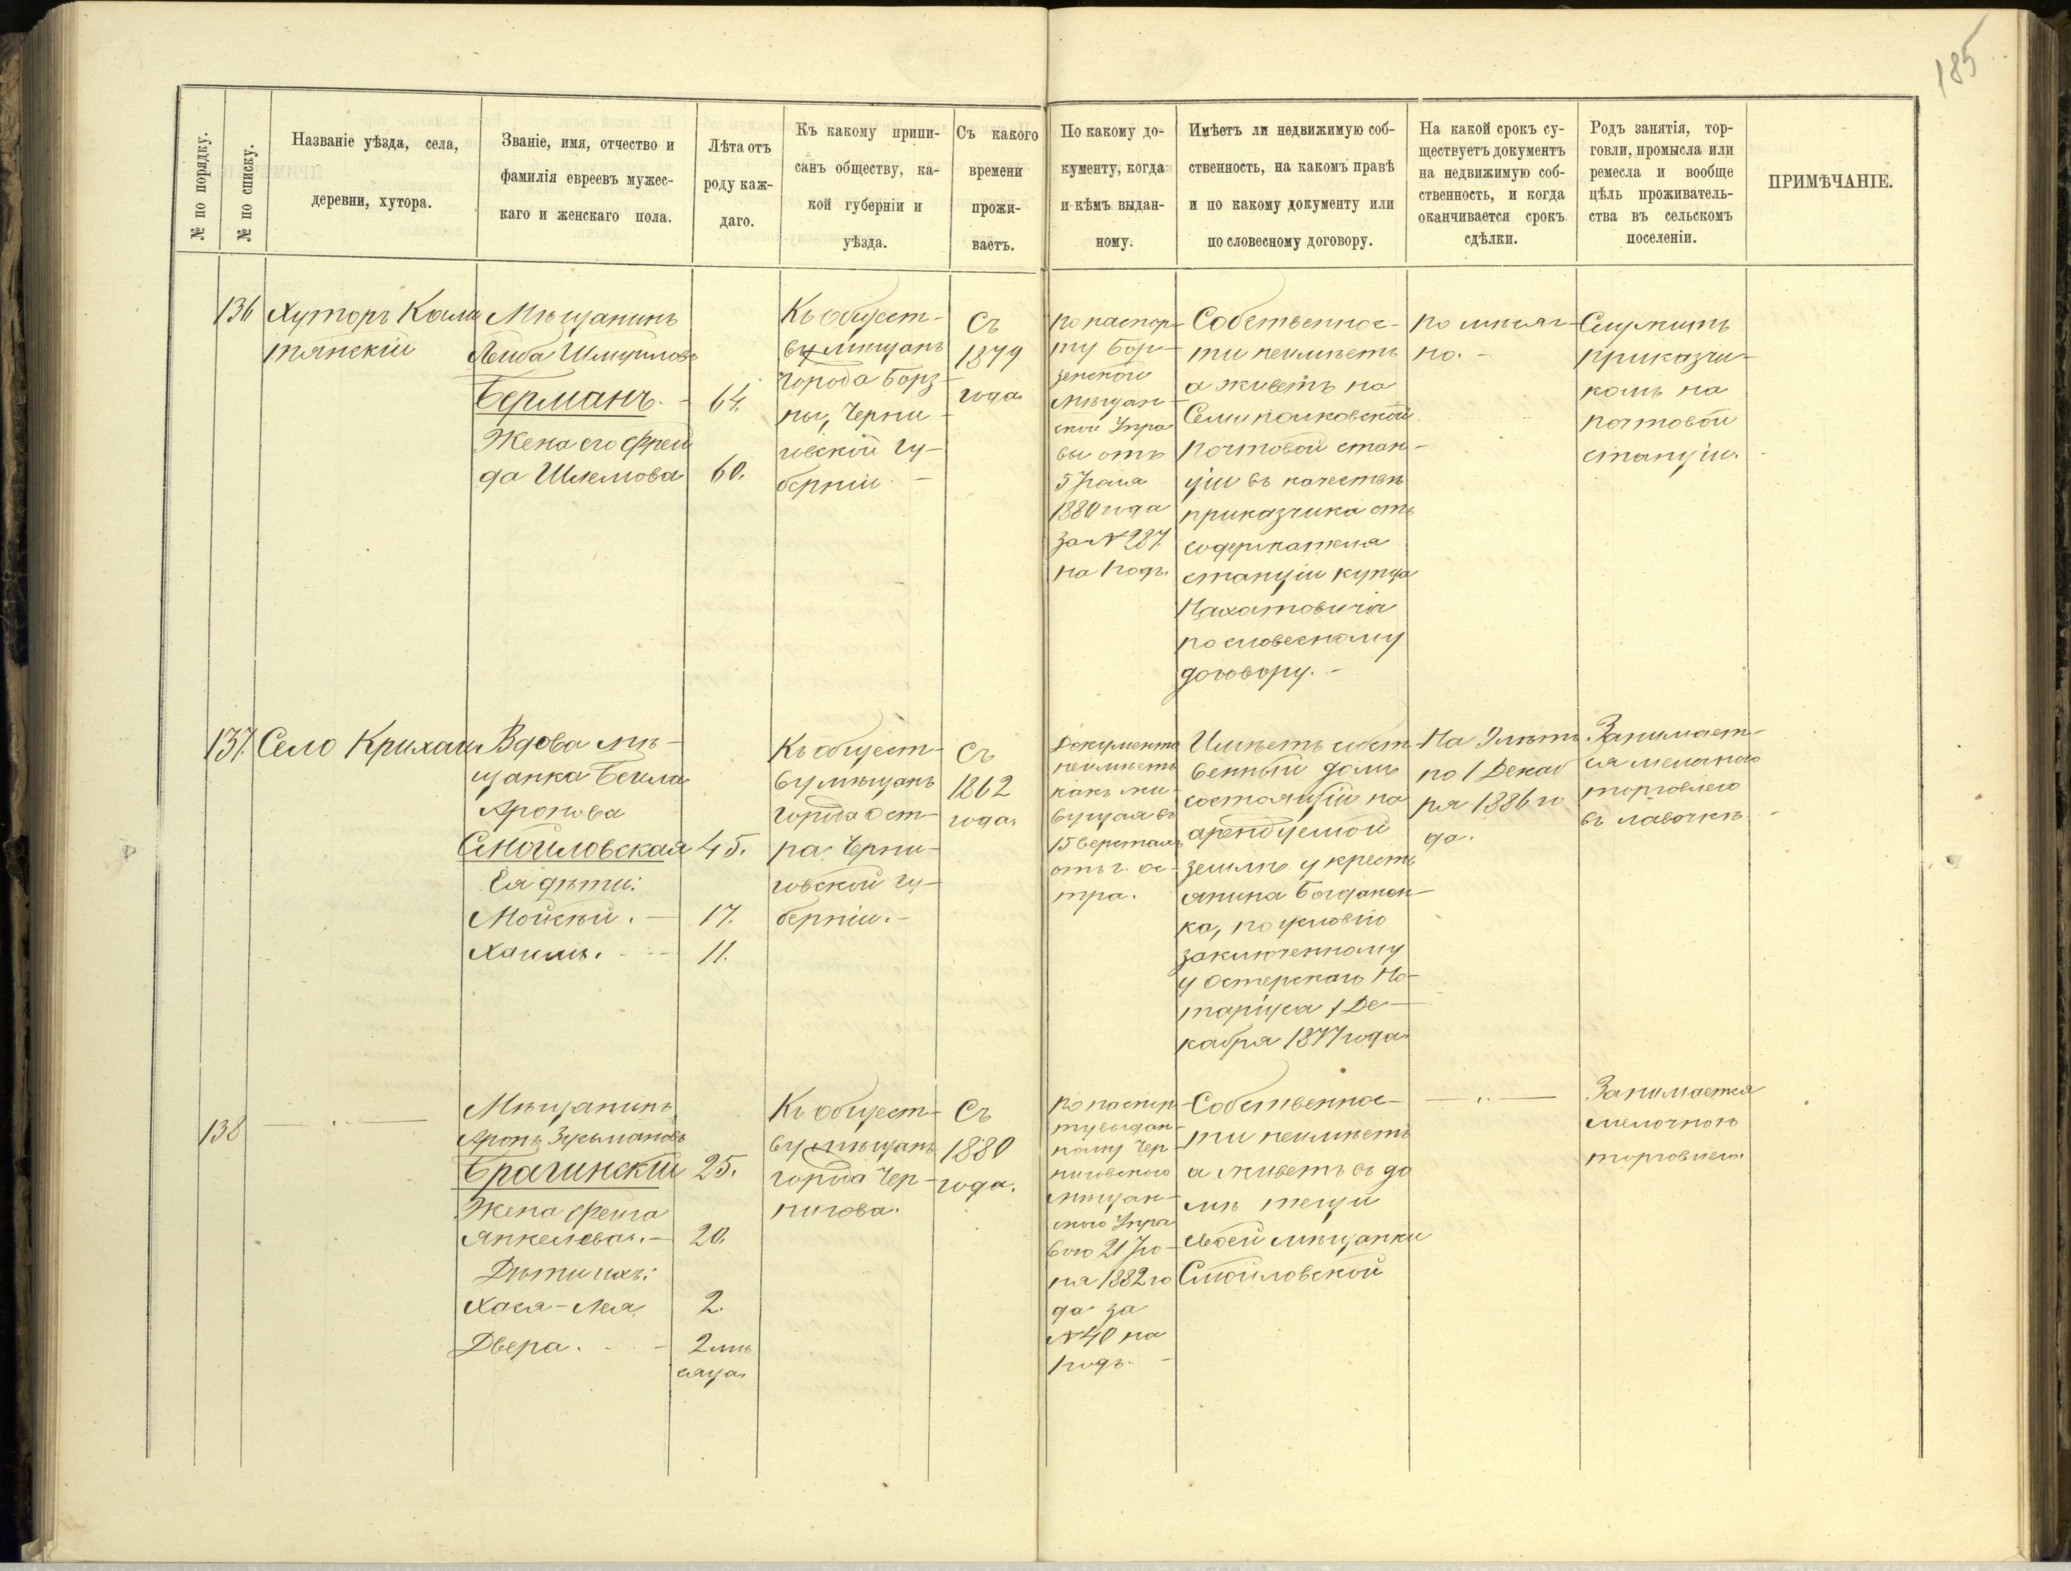 185
№ по порядку.
№ по списку.
Названіе уѣзда, села,
деревни, хутора.
Званіе, имя, отчество и
фамилія евреевъ мужес-
каго и женскаго пола.
Лѣта отъ
роду каж-
даго.
Къ какому припи-
санъ обществу, ка-
кой губерніи и
уѣзда.
Съ какого
времени
прожи-
ваетъ.
По какому до-
кументу, когда
и кѣмъ выдан-
ному.
Имѣетъ ли недвижимую соб-
ственность, на какомъ правѣ
и по какому документу или
по словесному договору.
На какой срокъ су-
ществуетъ документъ
на недвижимую соб-
ственность, и когда
оканчивается срокъ
сдѣлки.
Родъ занятія, тор-
говли, промысла или
ремесла и вообще
цѣль проживатель-
ства въ сельскомъ
поселеніи.
ПРИМѢЧАНІЕ.
136
Хуторъ
тянскій
Мѣщанинъ
Лейба Шмуйловъ
Берманъ. -
Жена его Фрей
да Шлемова
64.
60.
Къ общест-
ву мѣщанъ
города Борз
ны, Черни-
говской гу-
берніи. -
Съ
1879
года
По паспор-
ту Бор-
зенской
мѣщан-
ской Упра
вы отъ
5 Мая
1880 года
за № 227
на годъ.
Собственнос-
ти неимѣетъ
а живетъ на
Семиполковской
почтовой стан-
ціи въ качествѣ
приказчика отъ
содержателя
станціи купца
по словесному
договору. -
Служитъ
приказчи-
комъ на
почтовой
станціи.
137.
Село Крихаи
Вдова мѣ-
щанка Бейла
Аронова
Смойловская
Ея дѣти:
Мойсѣй. -
Хаимъ. - -
45.
17.
11.
Къ общест-
ву мѣщанъ
города Ост-
ра Черни-
говской гу-
берніи. -
Съ
1862
года.
Документа
неимѣетъ
какъ жи-
вущая въ
15 верстахъ
отъ г. Ос-
тра.
Имѣетъ собст
венный домъ
состоящій на
арендуемой
землѣ у кресть
янина Богданен-
ка, по условію
заключенному
у Остерскаго Но-
таріуса 1 Де-
кабря 1877 года
На 9 лѣтъ
по 1 Декаб
ря 1886 го
да.
Занимает-
ся мелочною
торговлею
въ лавочкѣ. -
138
— " —
Мѣщанинъ
Аронъ Зусьмановъ
Брагинскій
Жена Фейга
Янкелева. -
Дѣти ихъ:
Хася-Лея
Двера. - -
25.
20.
2.
2 мѣ
сяца
Къ общест-
ву мѣщанъ
города Чер-
нигова.
Съ
1880
года.
По паспор
ту выдан-
ному Чер
ниговского
мѣщан-
ского Упра
вою 21 Iю-
ня 1882 го
да за
№ 40 на
годъ. -
Собственнос-
ти неимѣетъ
а живетъ въ до
мѣ тещи
своей мѣщанки
Смойловской
— " —
Занимается
мелочною
торговлею.